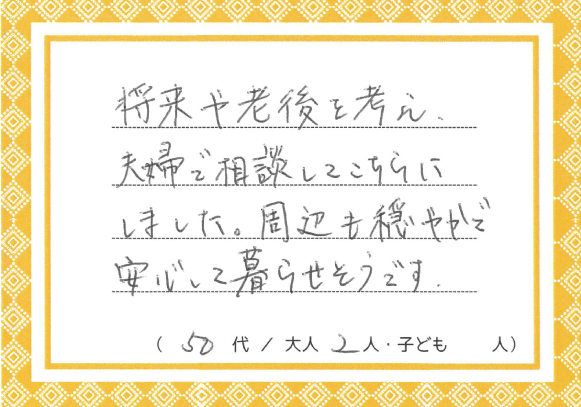 将来や老後を考え、
夫婦で相談してこちらに
しました。周辺も穏やかで
安心して暮らせそうです。
( 50 代 / 大人 2 人・子ども 人)